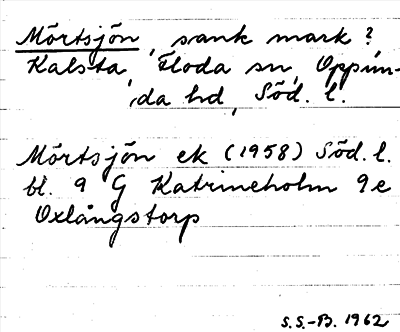 Mörtsjön, sank mark?,
Kalsta, Floda sn, Oppun-
da hd, Söd. l.
Mörtsjön ek (1958) Söd. l.
bl. 9 G Katrineholm 9e
Oxlångstorp
S.S.-B. 1962